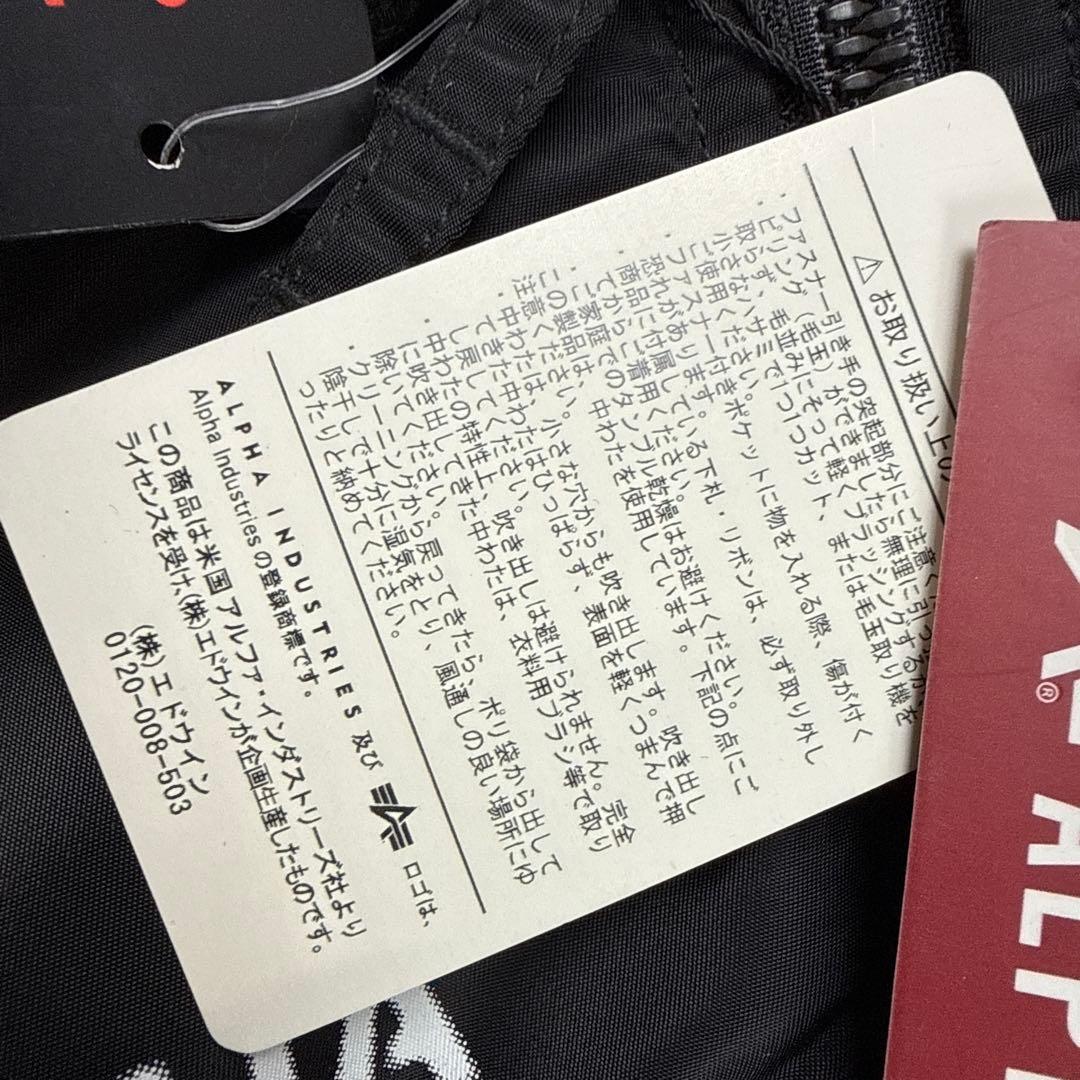 ⚠ お取り扱い上の
・ファスナー引き手の突起部分にご注意く
・ピリング(毛玉)ができましたら無理に引っ
毛並みにそって軽くブラッシングするか、
ハサミで1つ1つカット、または毛玉取り機を
ご使用ください。
・ファスナー付きポケットに物を入れる際、傷が付く
恐れがあります。
・商品に付属している下札・リボンは、必ず取り外し
・ご家庭でのタンブル乾燥はお避けください。
・この製品は、中わたを使用しています。下記の点にご
注意ください。
中わたは、小さな穴からも吹き出します。吹き出し
てきた中わたはひっぱらず、表面を軽くつまんで押
し戻してください。
中わたの特性上、吹き出しは避けられません。完全
に吹き出してきた中わたは、衣料用ブラシ等で取り
除いてください。
・クリーニングから戻ってきたら、ポリ袋から出して
陰干しで十分に湿気をとり、風通しの良い場所にゆ
ったりと納めてください。
ALPHA INDUSTRIES 及び ロゴは、
Alpha Industriesの登録商標です。
この商品は米国 アルファ・インダストリーズ社より
ライセンスを受け、(株)エドウインが企画生産したものです。
(株)エドウイン
0120-008-503
®
ALP